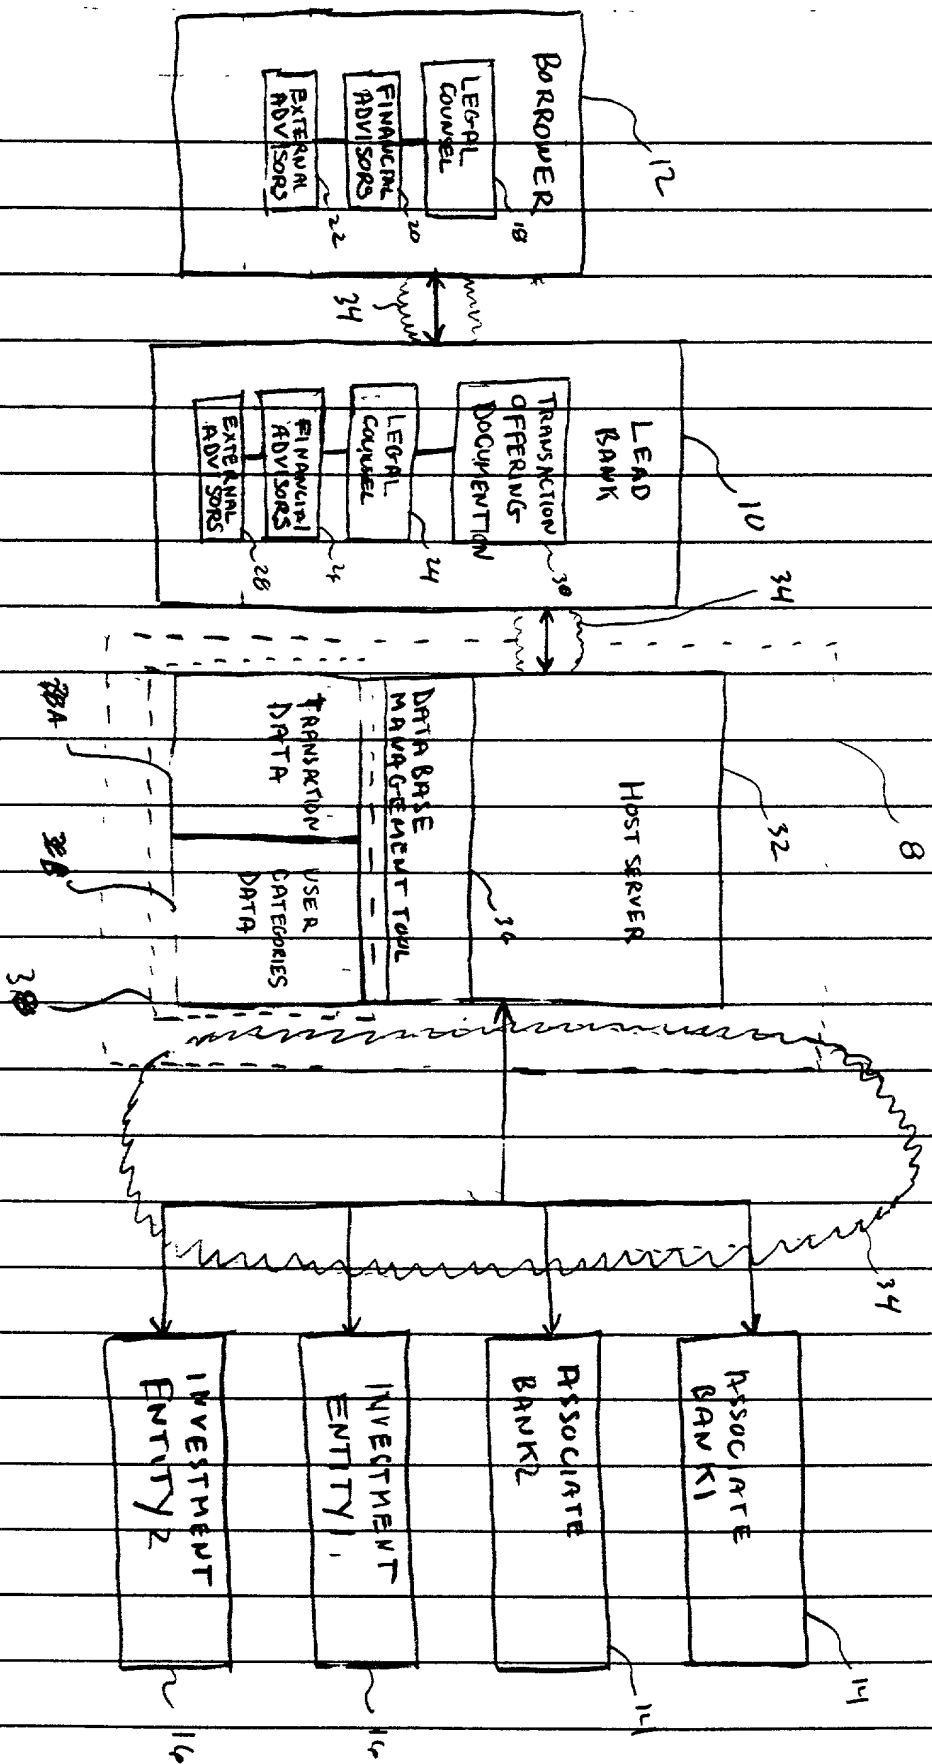 BORROWER
12
LEGAL
COUNSEL
18
FINANCIAL
ADVISORS
20
EXTERNAL
ADVISORS
22
34
LEAD
BANK
10
TRANSACTION
OFFERING
DOCUMENTION
30
LEGAL
COUNSEL
24
FINANCIAL
ADVISORS
EXTERNAL
ADVISORS
28
34
8
HOST SERVER
32
DATABASE
MANAGEMENT TOOL
36
TRANSACTION
DATA
USER
CATEGORIES
DATA
34
ASSOCIATE
BANK1
14
ASSOCIATE
BANK2
14
INVESTMENT
ENTITY1
16
INVESTMENT
ENTITY2
16